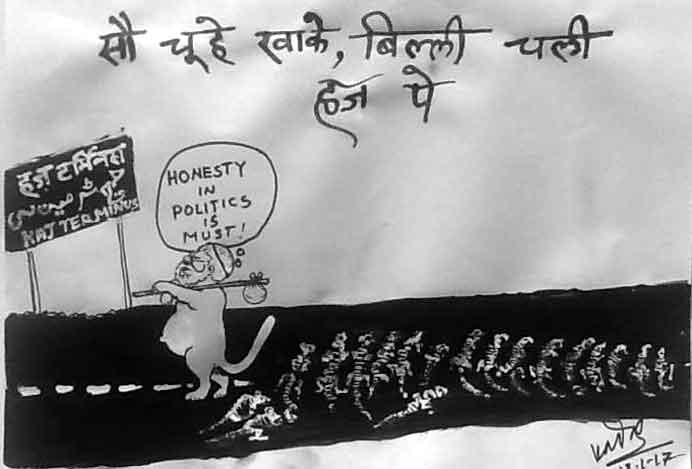 सौ चूहे खाके, बिल्ली चली
हज पे
हज टर्मिनस
HAJ TERMINUS
HONESTY
IN
POLITICS
IS
MUST!